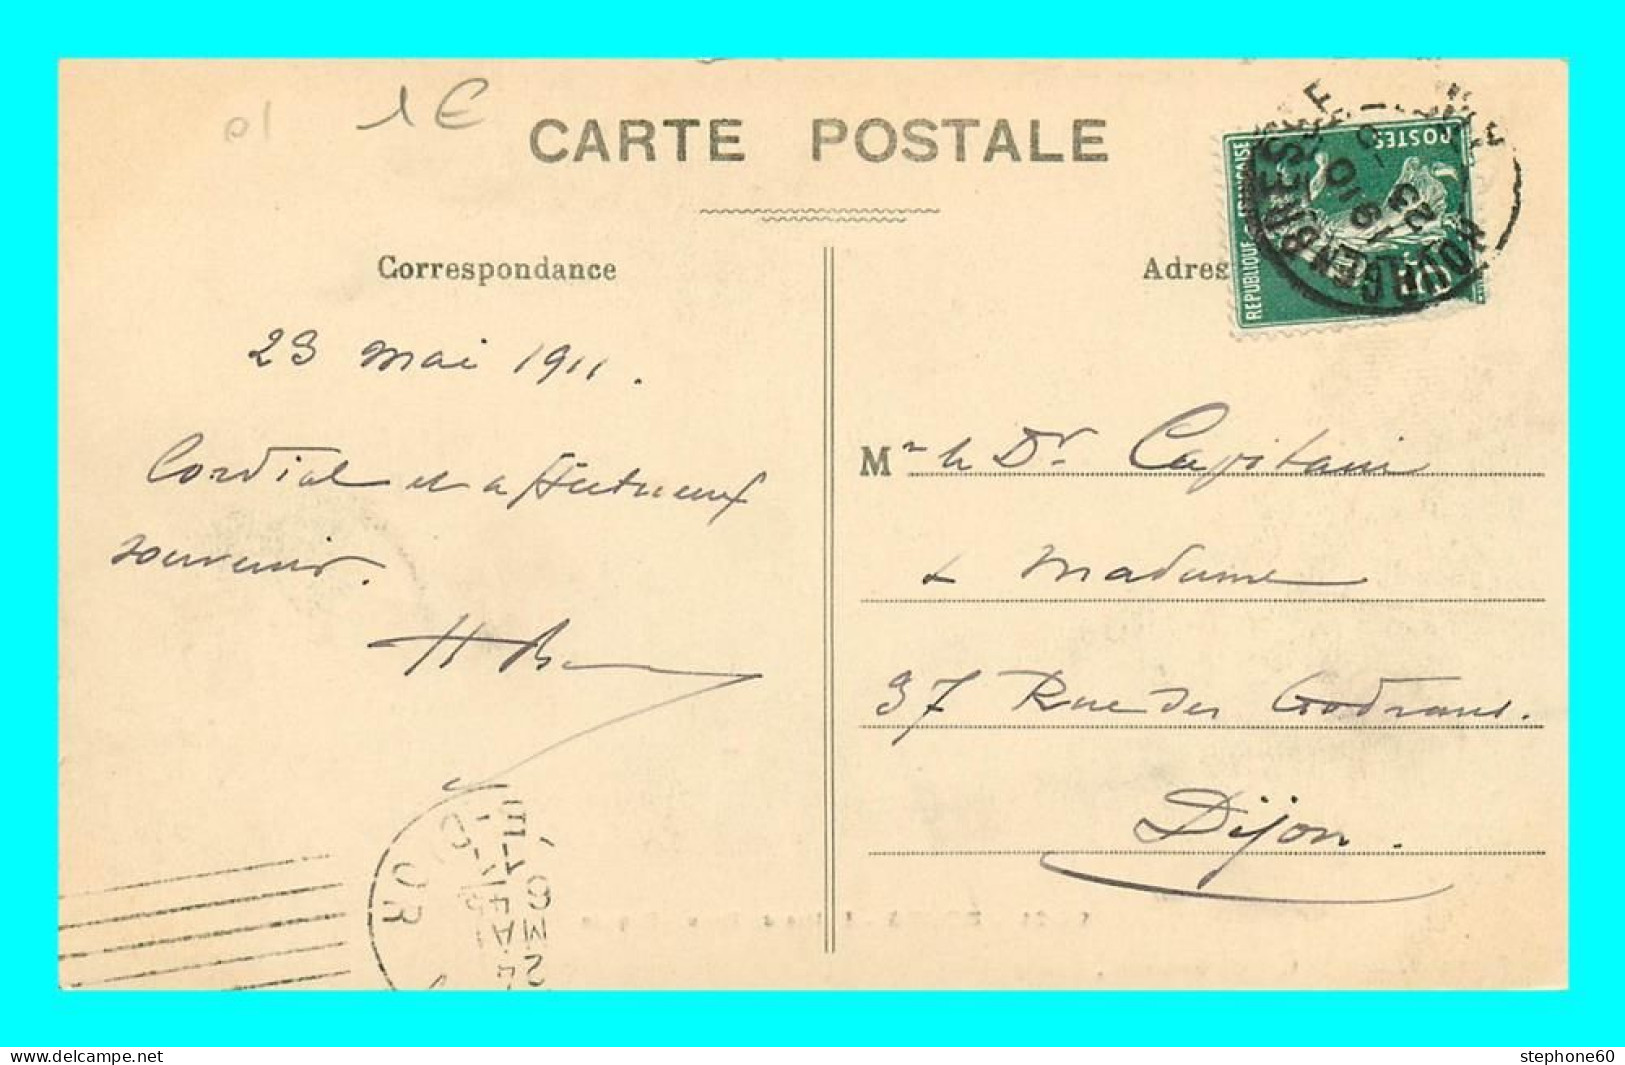 1€
CARTE POSTALE
Correspondance
Adres
REPUBLIQUE FRANÇAISE
POSTES
BOURG EN BRESSE
23
1910
23 mai 1911.
Cordial et affectueux
souvenir.
M r le Dr Capitain
& Madame
37 Rue des Godrans.
Dijon.
delcampe.net
stephone60